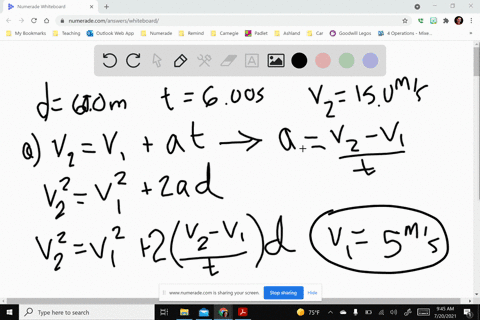 Numerade Whiteboard
numerade.com/answers/whiteboard/
Apps My Bookmarks Teaching Outlook Web App Numerade Remind Carnegie Padlet Ashland Canvas Car Goodwill Legos 4 Operations – Mixe...
d = 60.0m t = 6.00s V₂ = 15.0 m/s
a) V₂ = V₁ + at → a = (V₂ - V₁)/t
V₂² = V₁² + 2ad
V₂² = V₁² + 2((V₂ - V₁)/t)d V₁ = 5 m/s
www.numerade.com is sharing your screen. Stop sharing Hide
Type here to search
75°F
9:45 AM
7/20/2021